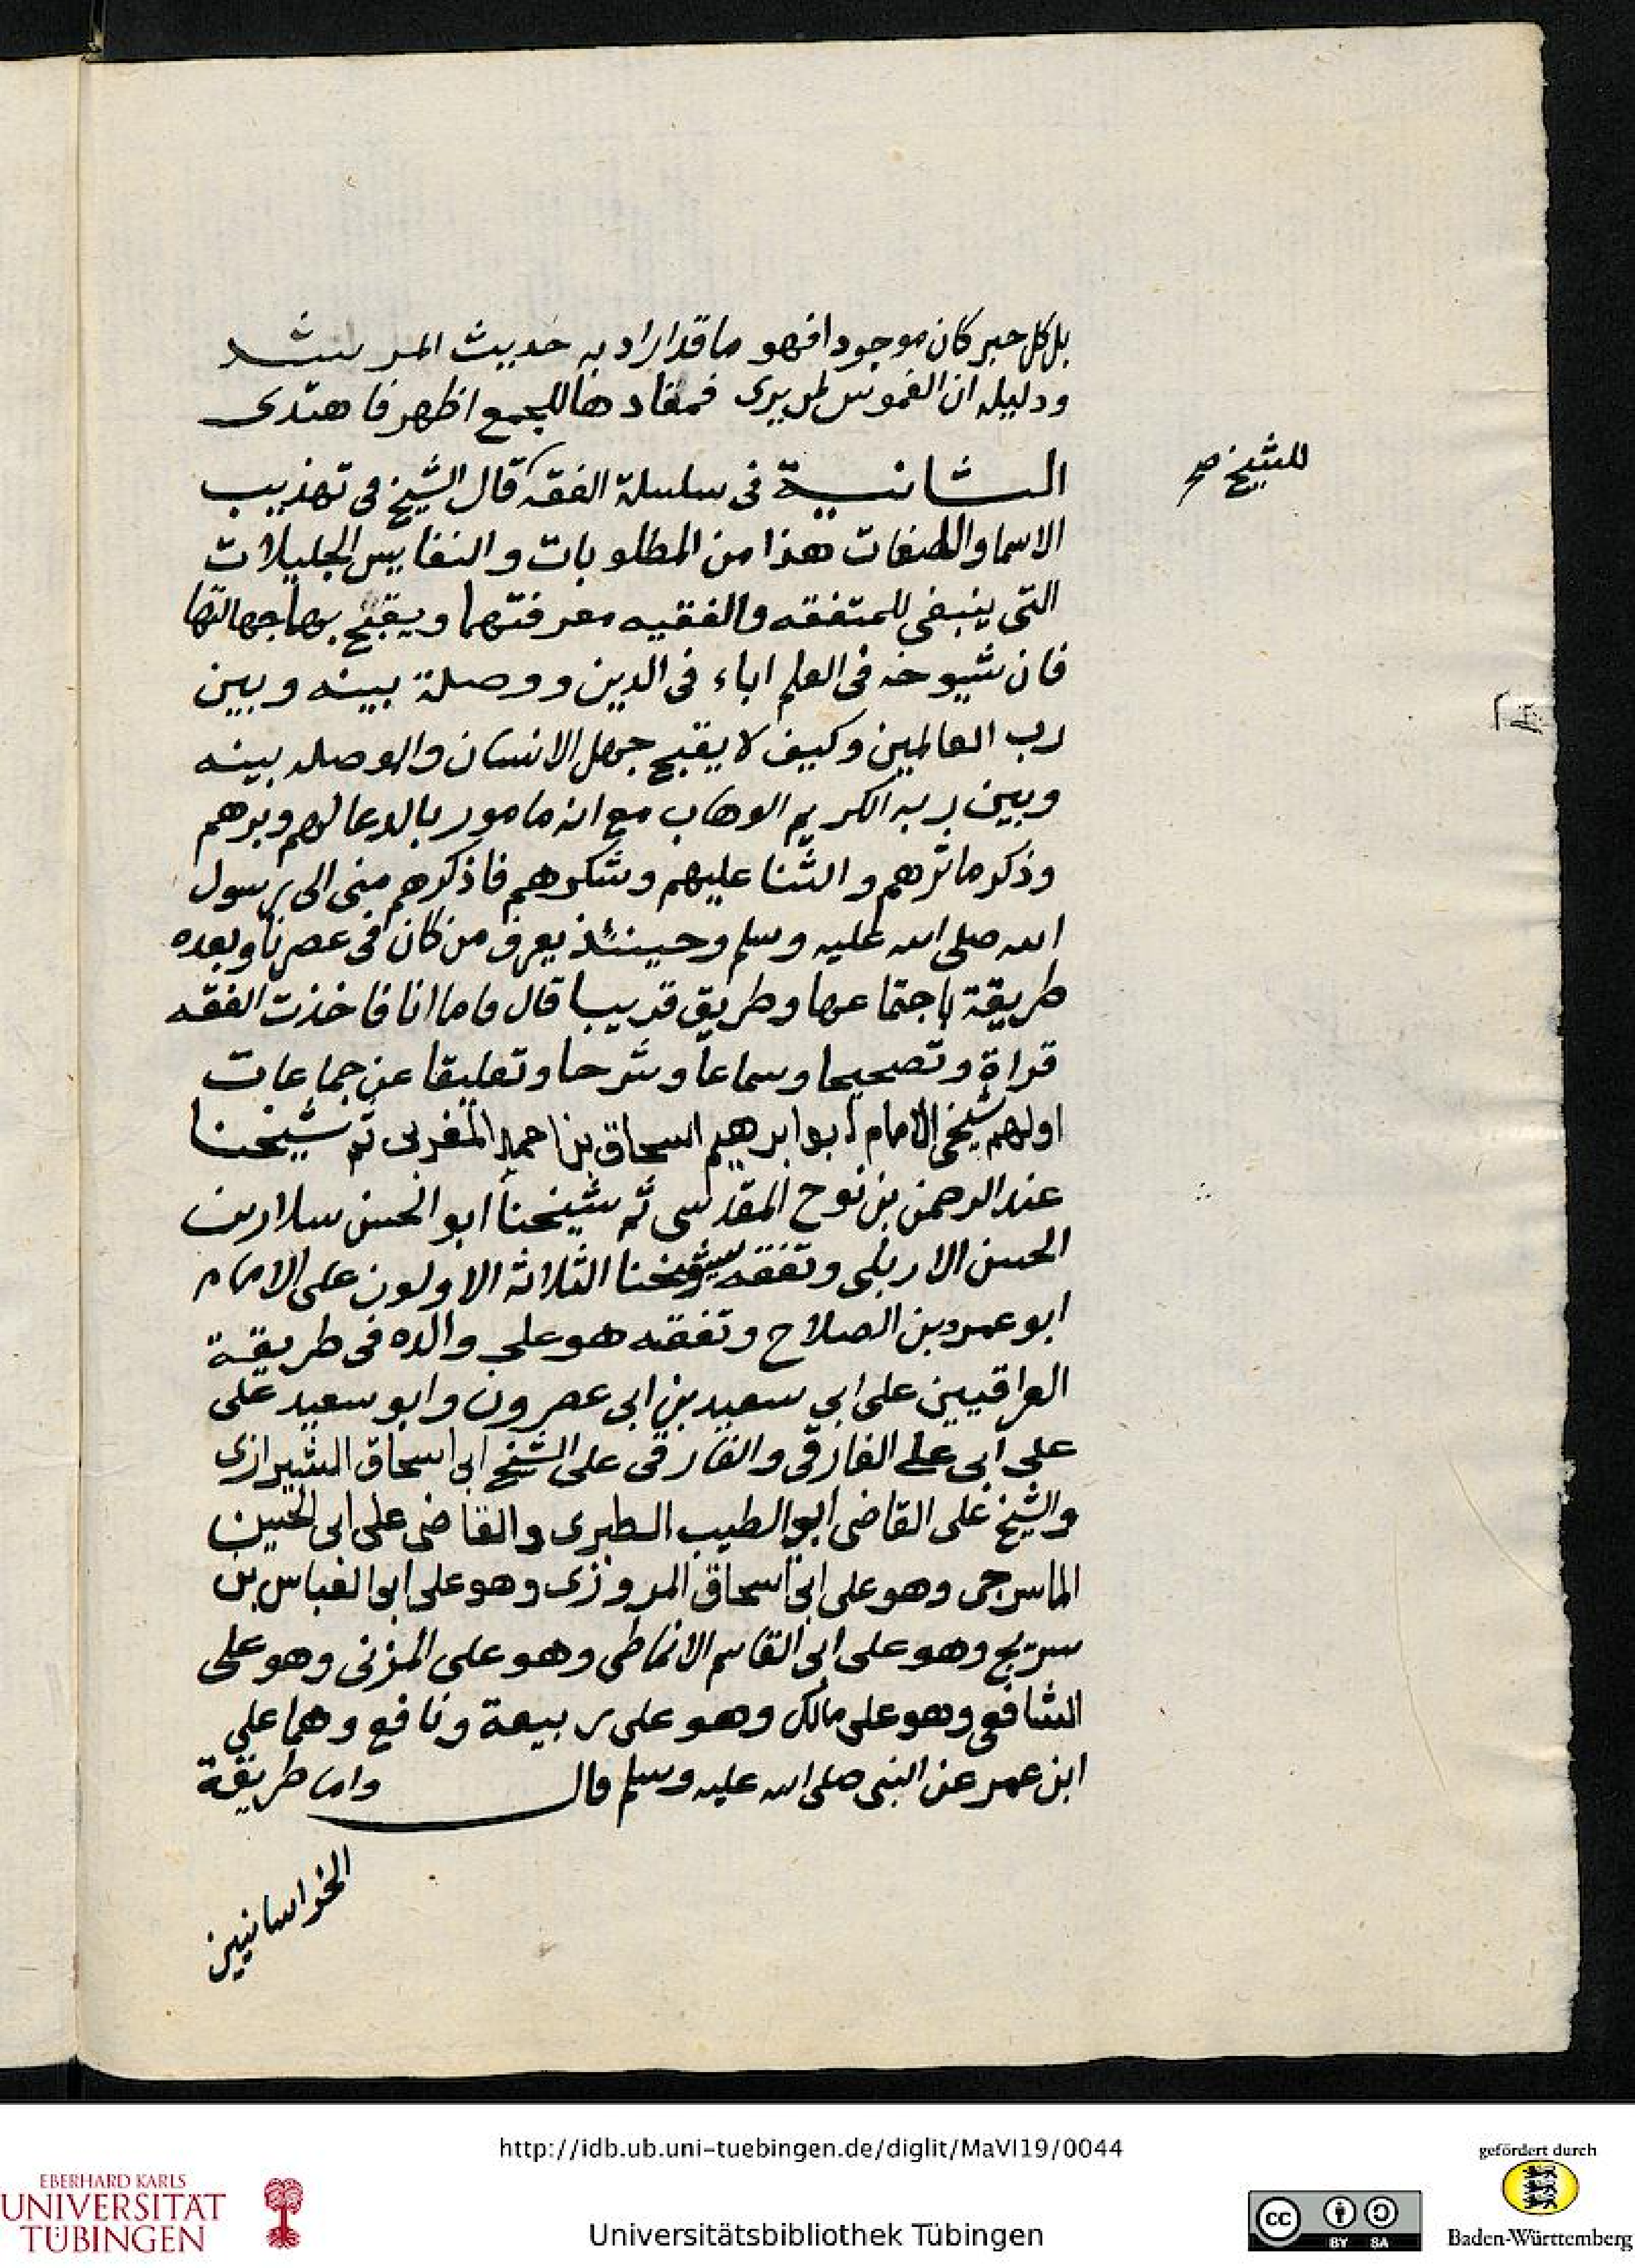 بل كل حبر كان موجودا فهو ما قد اراد به حديث المرشد
ودليله ان الغموس لم يرى فمفادها للجمع اظهر فاهتدى
الثانية فى سلسلة الفقه قال الشيخ فى تهذيب
للشيخ صح
الاسما والصفات هذا من المطلوبات والنفايس الجليلات
التى ينبغى للمتفقه والفقيه معرفتهما ويقبح بهما جهالتها
فان شيوخه فى العلم اباء فى الدين ووصلة بينه وبين
رب العالمين وكيف لا يقبح جهل الانسان والوصله بينه
وبين ربه الكريم الوهاب مع انه مامور بالدعا لهم وبرهم
وذكر ماثرهم والثنا عليهم وشكرهم فاذكرهم منى الى رسول
الله صلى الله عليه وسلم وحينئذ يعرف من كان فى عصرنا وبعده
طريقة باجتماعها وطريق قريبا قال واما انا فاخذت الفقه
قراة وتصحيحا وسماعا وشرحا وتعليقا عن جماعات
اولهم شيخى الامام ابو ابرهيم اسحاق بن احمد المغربى ثم شيخنا
عبد الرحمن بن نوح المقدسى ثم شيخنا ابو الحسن سلار بن
الحسن الاربلى وتفقه شيوخنا الثلاثة الاولون على الامام
ابو عمرو بن الصلاح وتفقه هو على والده فى طريقة
العراقيين على ابى سعيد بن ابى عصرون وابو سعيد على
على ابى على الفارقى والفارقى على الشيخ ابى اسحاق الشيرازى
والشيخ على القاضى ابو الطيب الطبرى والقاضى على ابى الحسين
الماسرجى وهو على ابى اسحاق المروزى وهو على ابو العباس بن
سريج وهو على ابى القاسم الانماطى وهو على المزنى وهو على
الشافعى وهو على مالك وهو على ربيعة ونافع وهما على
ابن عمر عن النبى صلى الله عليه وسلم قال واما طريقة
الخراسانيين
http://idb.ub.uni-tuebingen.de/diglit/MaVI19/0044
Universitätsbibliothek Tübingen
EBERHARD KARLS
UNIVERSITÄT
TÜBINGEN
cc BY SA
gefördert durch
Baden-Württemberg